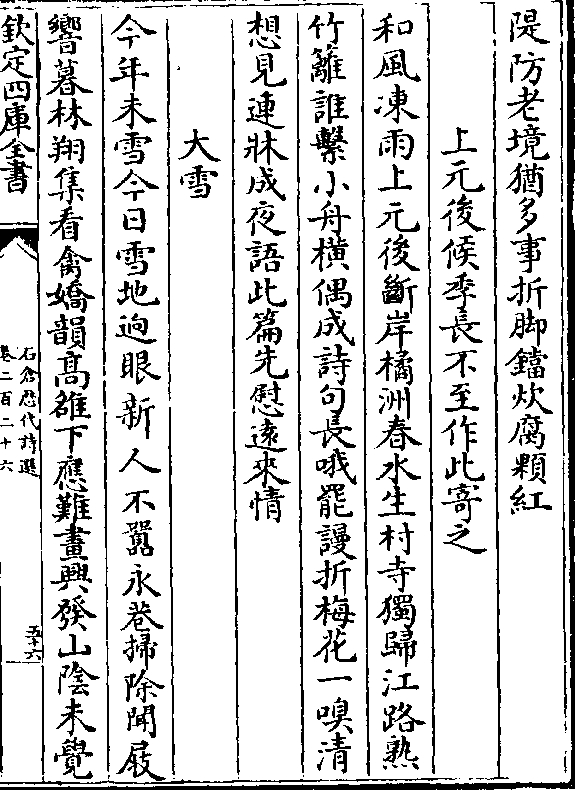 隄防老境猶多事折脚鐺炊腐顆紅
上元後候季長不至作此寄之
和風凍雨上元後斷岸橘洲春水生村寺獨歸江路熟
竹籬誰繫小舟橫偶成詩句長哦罷謾折梅花一嗅清
想見連牀成夜語此篇先慰遠來情
大雪
今年未雪今日雪地逈眼新人不嚣永巷掃除聞屐
響暮林翔集看禽嬌韻高雖下應難畫興發山陰未覺
欽定四庫全書
石倉歷代詩選
卷二百二十六
五十六